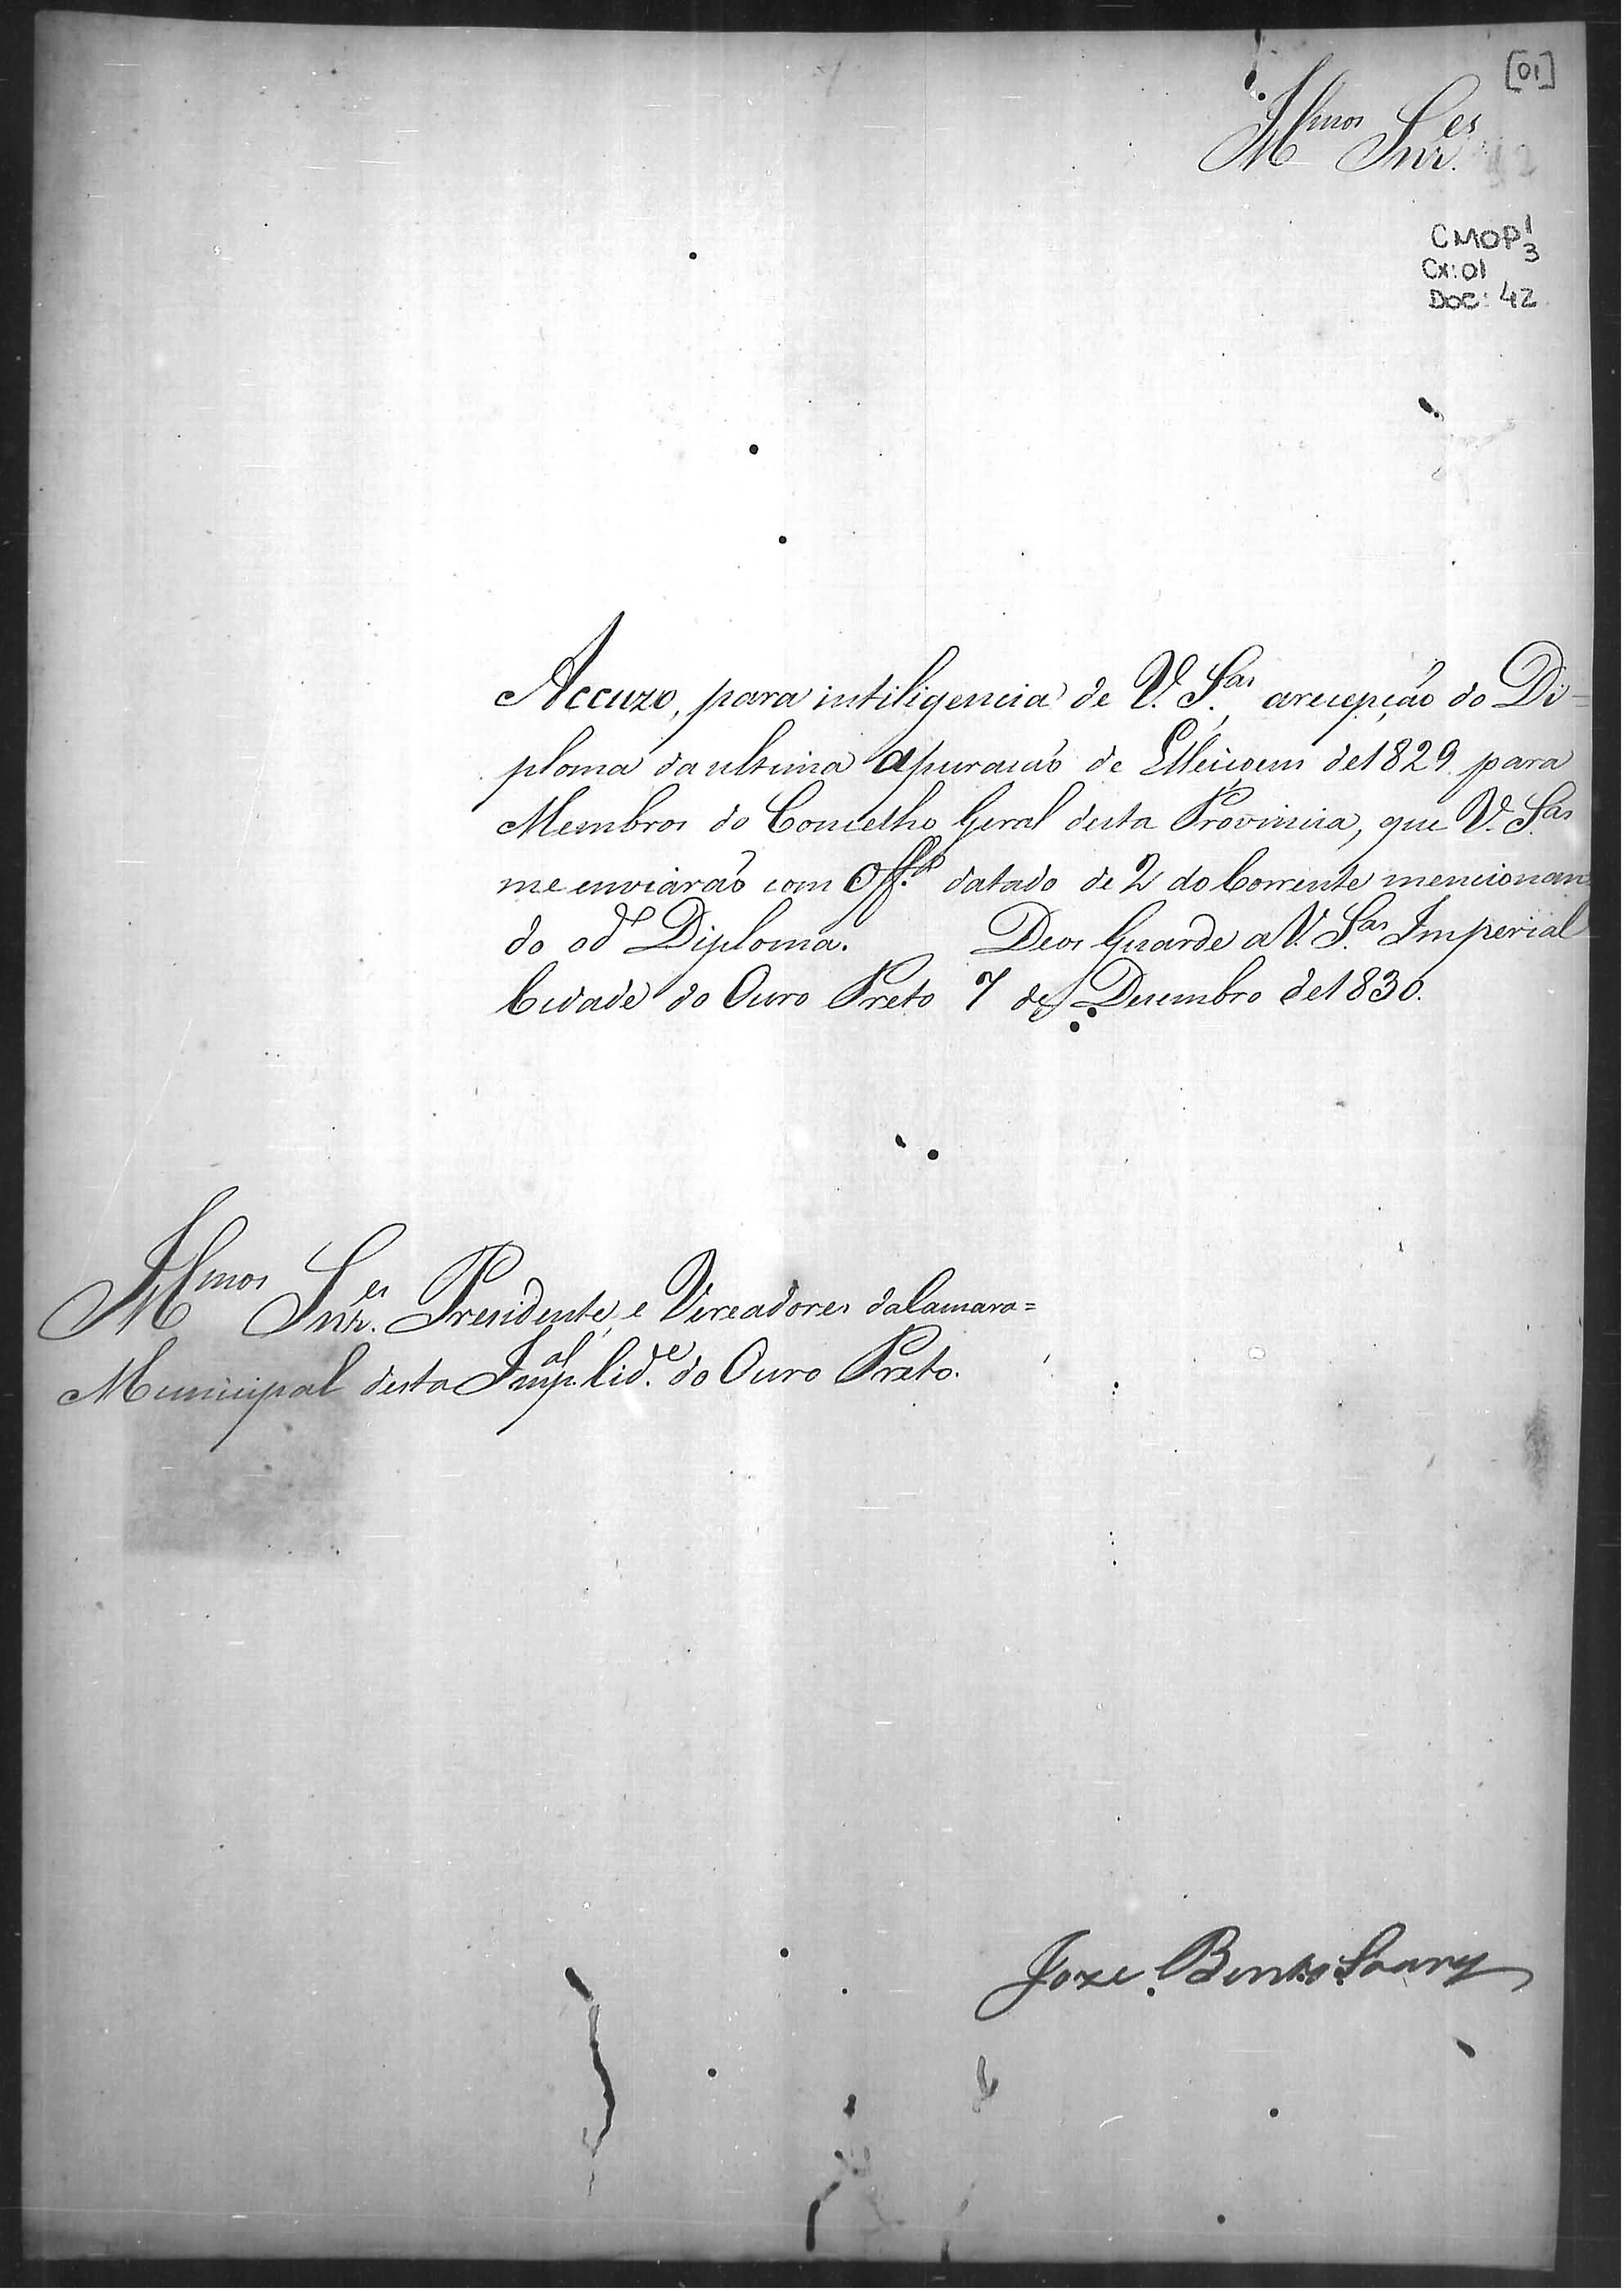 [01]
Illmos Snres.
CMOP 1/3
Cx: 01
Doc: 42
Accuzo, para intiligencia de V. Sas, arecepção do Di=
ploma da ultima Apuracaõ de Elleicoens de 1829 para
Membros do Concelho Geral desta Provincia, que V. Sas
me enviaraõ com Offo. datado de 2 do Corrente mencionan
do odo Diploma. Deos Guarde a V. Sas Imperial
Cidade do Ouro Preto 7 de Dezembro de 1830.
Illmos Snres. Presidente, e Vereadores da Camara=
Municipal desta Impal. Cide. do Ouro Preto.
Joze Bento Soares